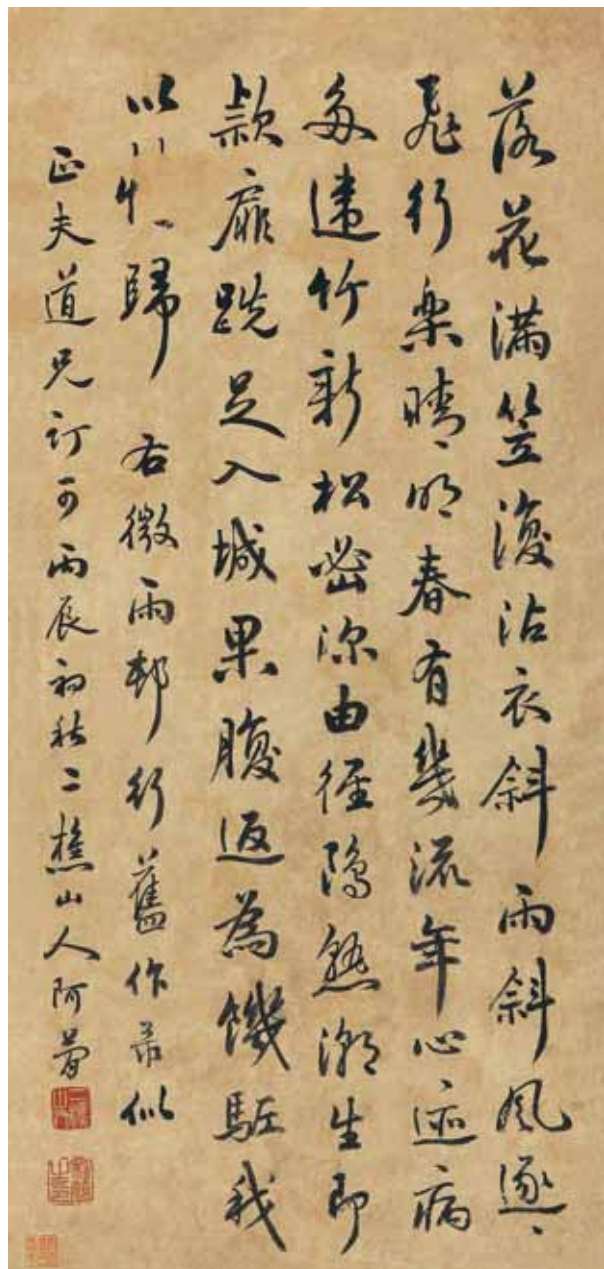 落花滿笠復沾衣斜雨斜風逐逐
飛行樂晴明春有幾流年心迹病
多違竹新松密深由徑潮生即
款扉跣足入城果腹返為饑駈我
以歸 右微雨邨行舊作录似
正夫道兄訂可丙辰初秋二樵山人阿簡